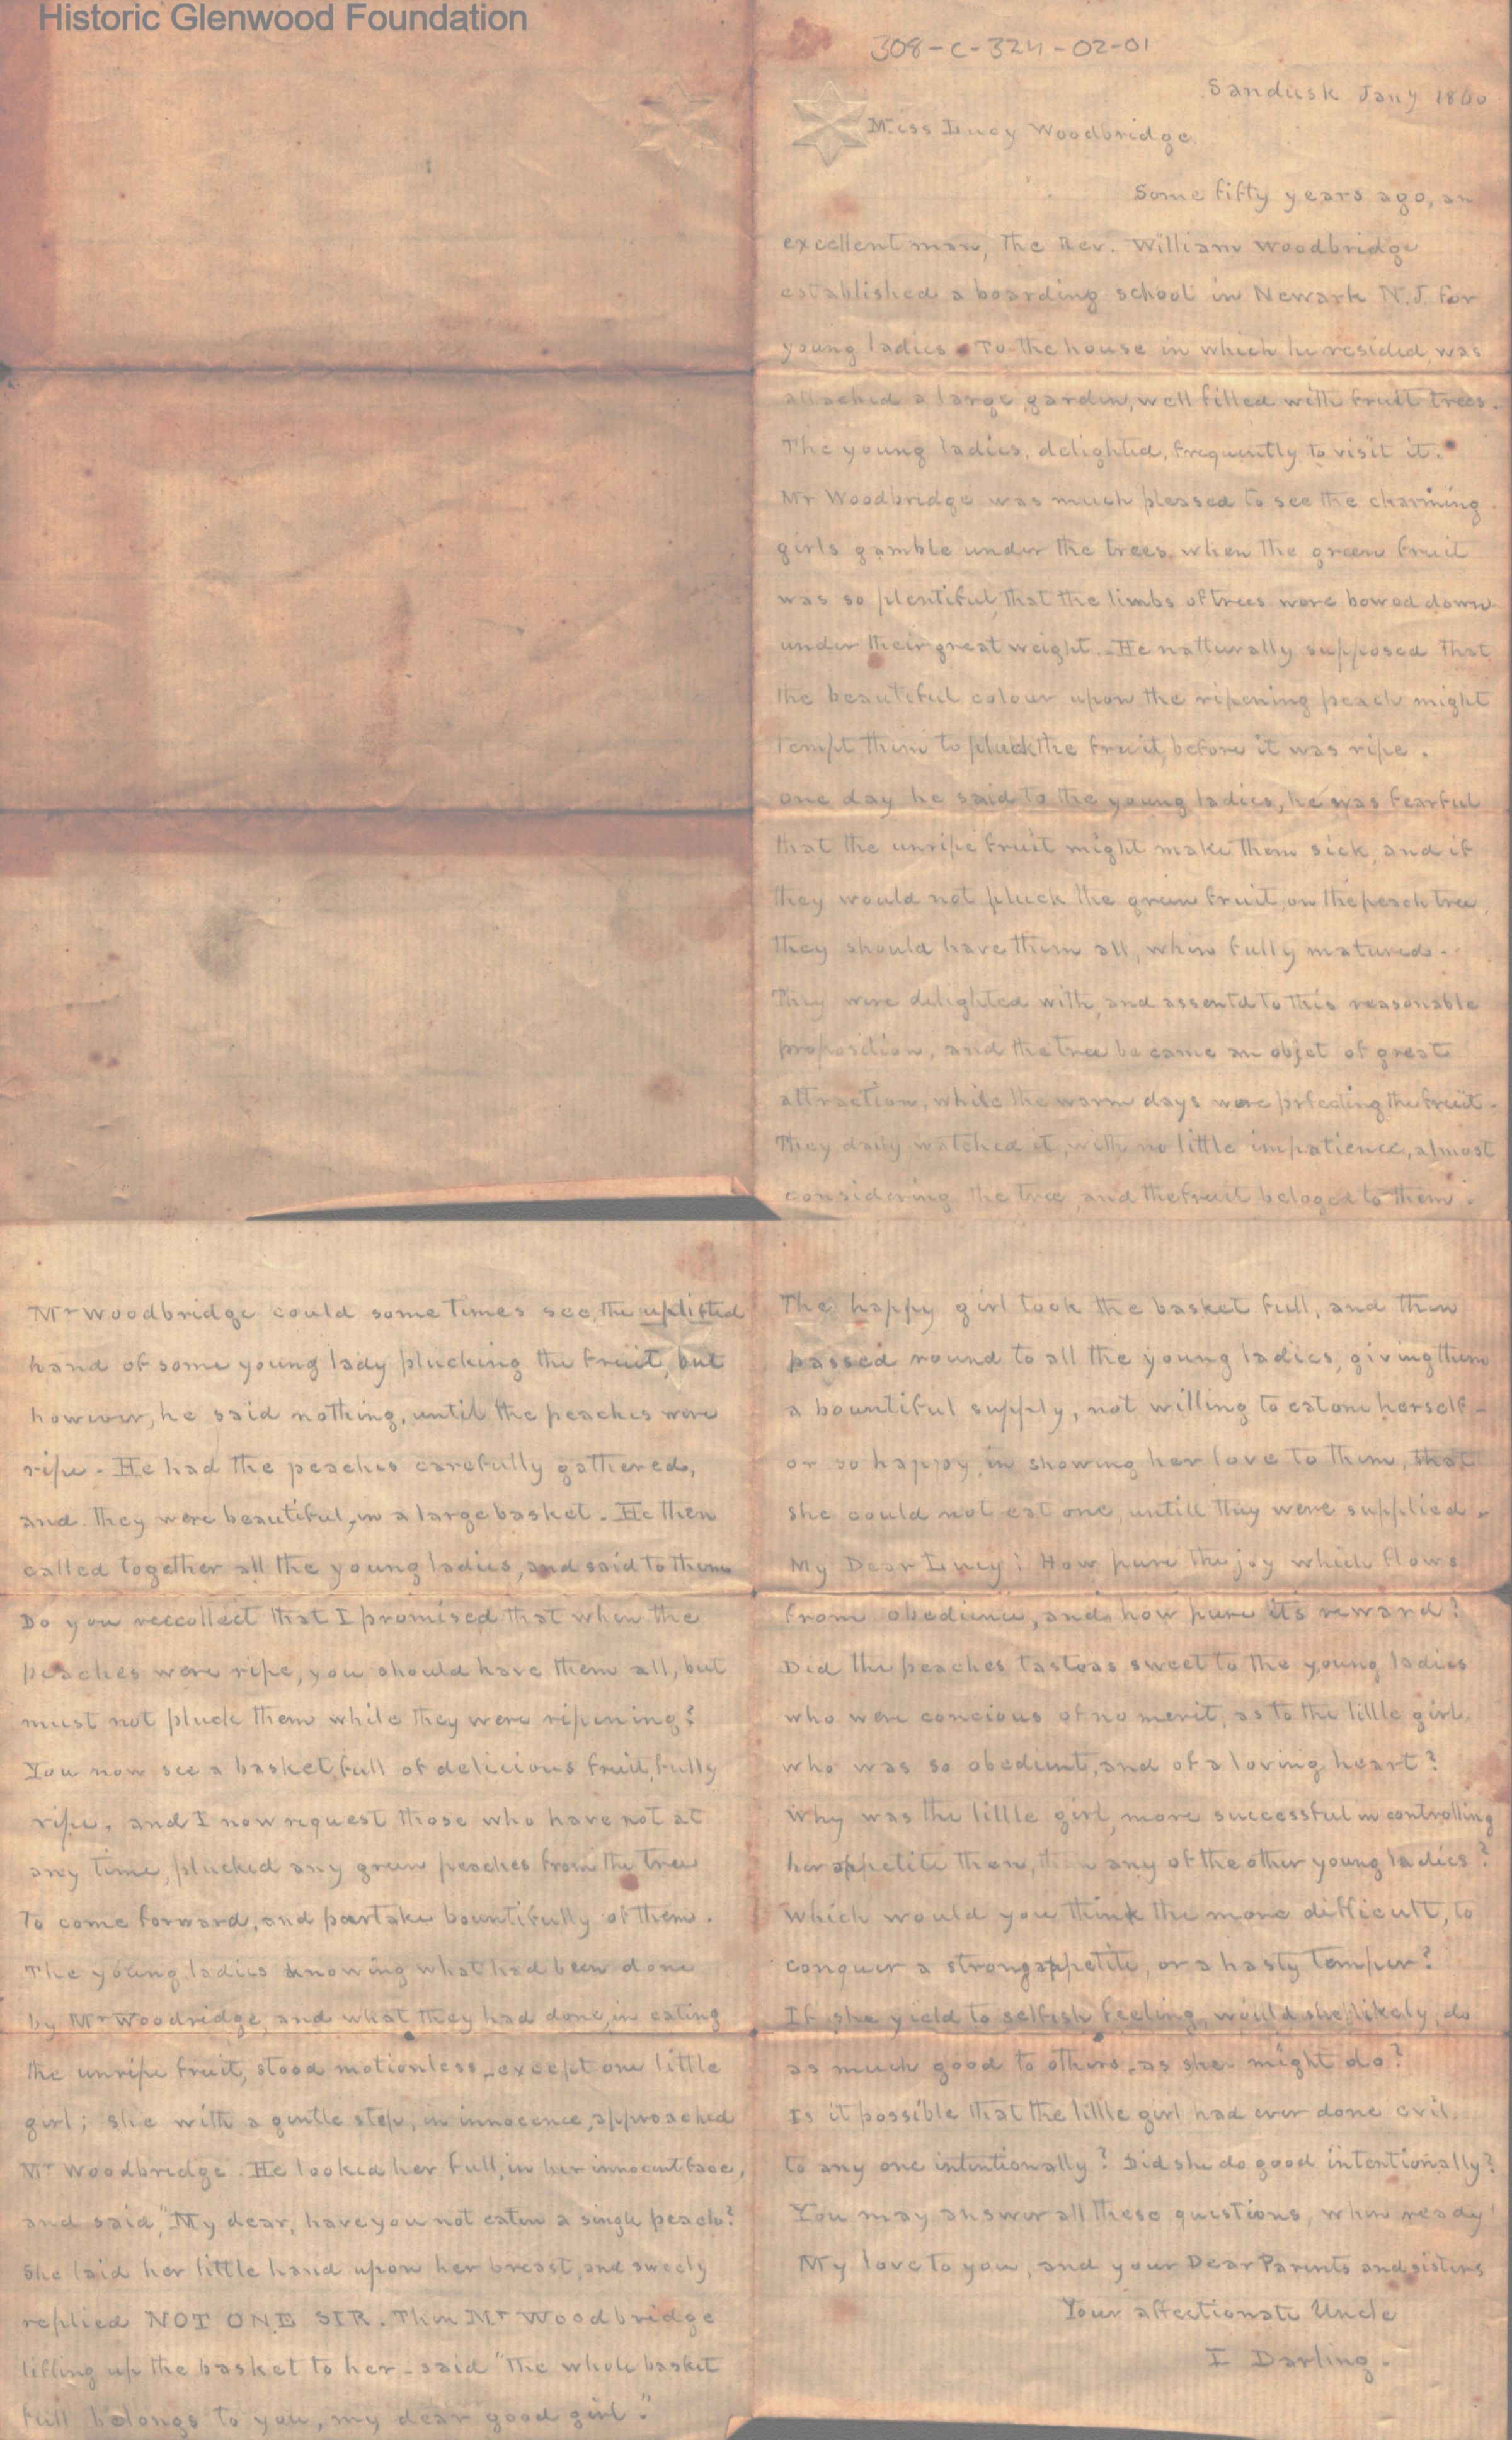 Historic Glenwood Foundation
308-C-324-02-01
Sandusk Jany 1860
Miss Lucy Woodbridge
Some fifty years ago, an
excellent man, The Rev. William Woodbridge
established a boarding school in Newark N.J. for
young ladies. To the house in which he resided, was
attached a large garden, well filled with fruit trees.
The young ladies, delighted, frequently to visit it.
Mr Woodbridge was much pleased to see the charming
girls gamble under the trees, when the green fruit
was so plentiful, that the limbs of trees were bowed down
under their great weight. He natturally supposed that
the beautiful colour upon the ripening peach might
tempt them to pluck the fruit, before it was ripe.
One day he said to the young ladies, he was fearful
that the unripe fruit might make them sick, and if
they would not pluck the green fruit, on the peach tree,
they should have them all, when fully matured.
They were delighted with, and assentd to this reasonable
proposition, and the tree became an objet of great
attraction, while the warm days were prfecting the fruit.
They daily watched it, with no little impatience, almost
considering the tree, and the fruit beloged to them.
Mr Woodbridge could some times see, the uplifted
hand of some young lady plucking the fruit, but
however, he said nothing, until the peaches were
ripe. He had the peaches carefully gathered,
and they were beautiful, in a large basket. He then
called together all the young ladies, and said to them
Do you reccollect that I promised that when the
peaches were ripe, you should have them all, but
must not pluck them while they were ripening?
You now see a basket full of delicious fruit, fully
ripe, and I now request those who have not at
any time, plucked any green peaches from the tree
To come forward, and partake bountifully of them.
The young ladies knowing what had been done
by Mr Woodridge, and what they had done, in eating
the unripe fruit, stood motionless, except one little
girl; she with a gentle step, in innocence, approached
Mr Woodbridge. He looked her full, in her innocent face,
and said, "My dear, have you not eaten a single peach?
She laid her little hand upon her breast, and sweely
replied NOT ONE SIR. Then Mr Woodbridge
lifling up the basket to her - said "The whole basket
full belongs to you, my dear good girl."
The happy girl took the basket full, and then
passed round to all the young ladies, giving them
a bountiful supply, not willing to eat one herself -
or so happy, in showing her love to them, that
she could not eat one, untill they were supplied.
My Dear Lucy! How pure the joy which flows
from obedience, and how pure its reward?
Did the peaches taste as sweet to the young ladies
who were concious of no merit, as to the little girl.
who was so obedient, and of a loving heart?
Why was the little girl, more successful in controlling
her appetite then, any of the other young ladies?
Which would you think the more difficult, to
conquer a strong appetite, or a hasty temper?
If she yield to selfish feeling, would she likely, do
as much good to others, as she might do?
Is it possible that the little girl had ever done evil,
to any one intentionally? Did she do good intentionally?
You may answer all these questions, when ready
My love to you, and your Dear Parents and sisters
Your affectionate Uncle
I Darling.